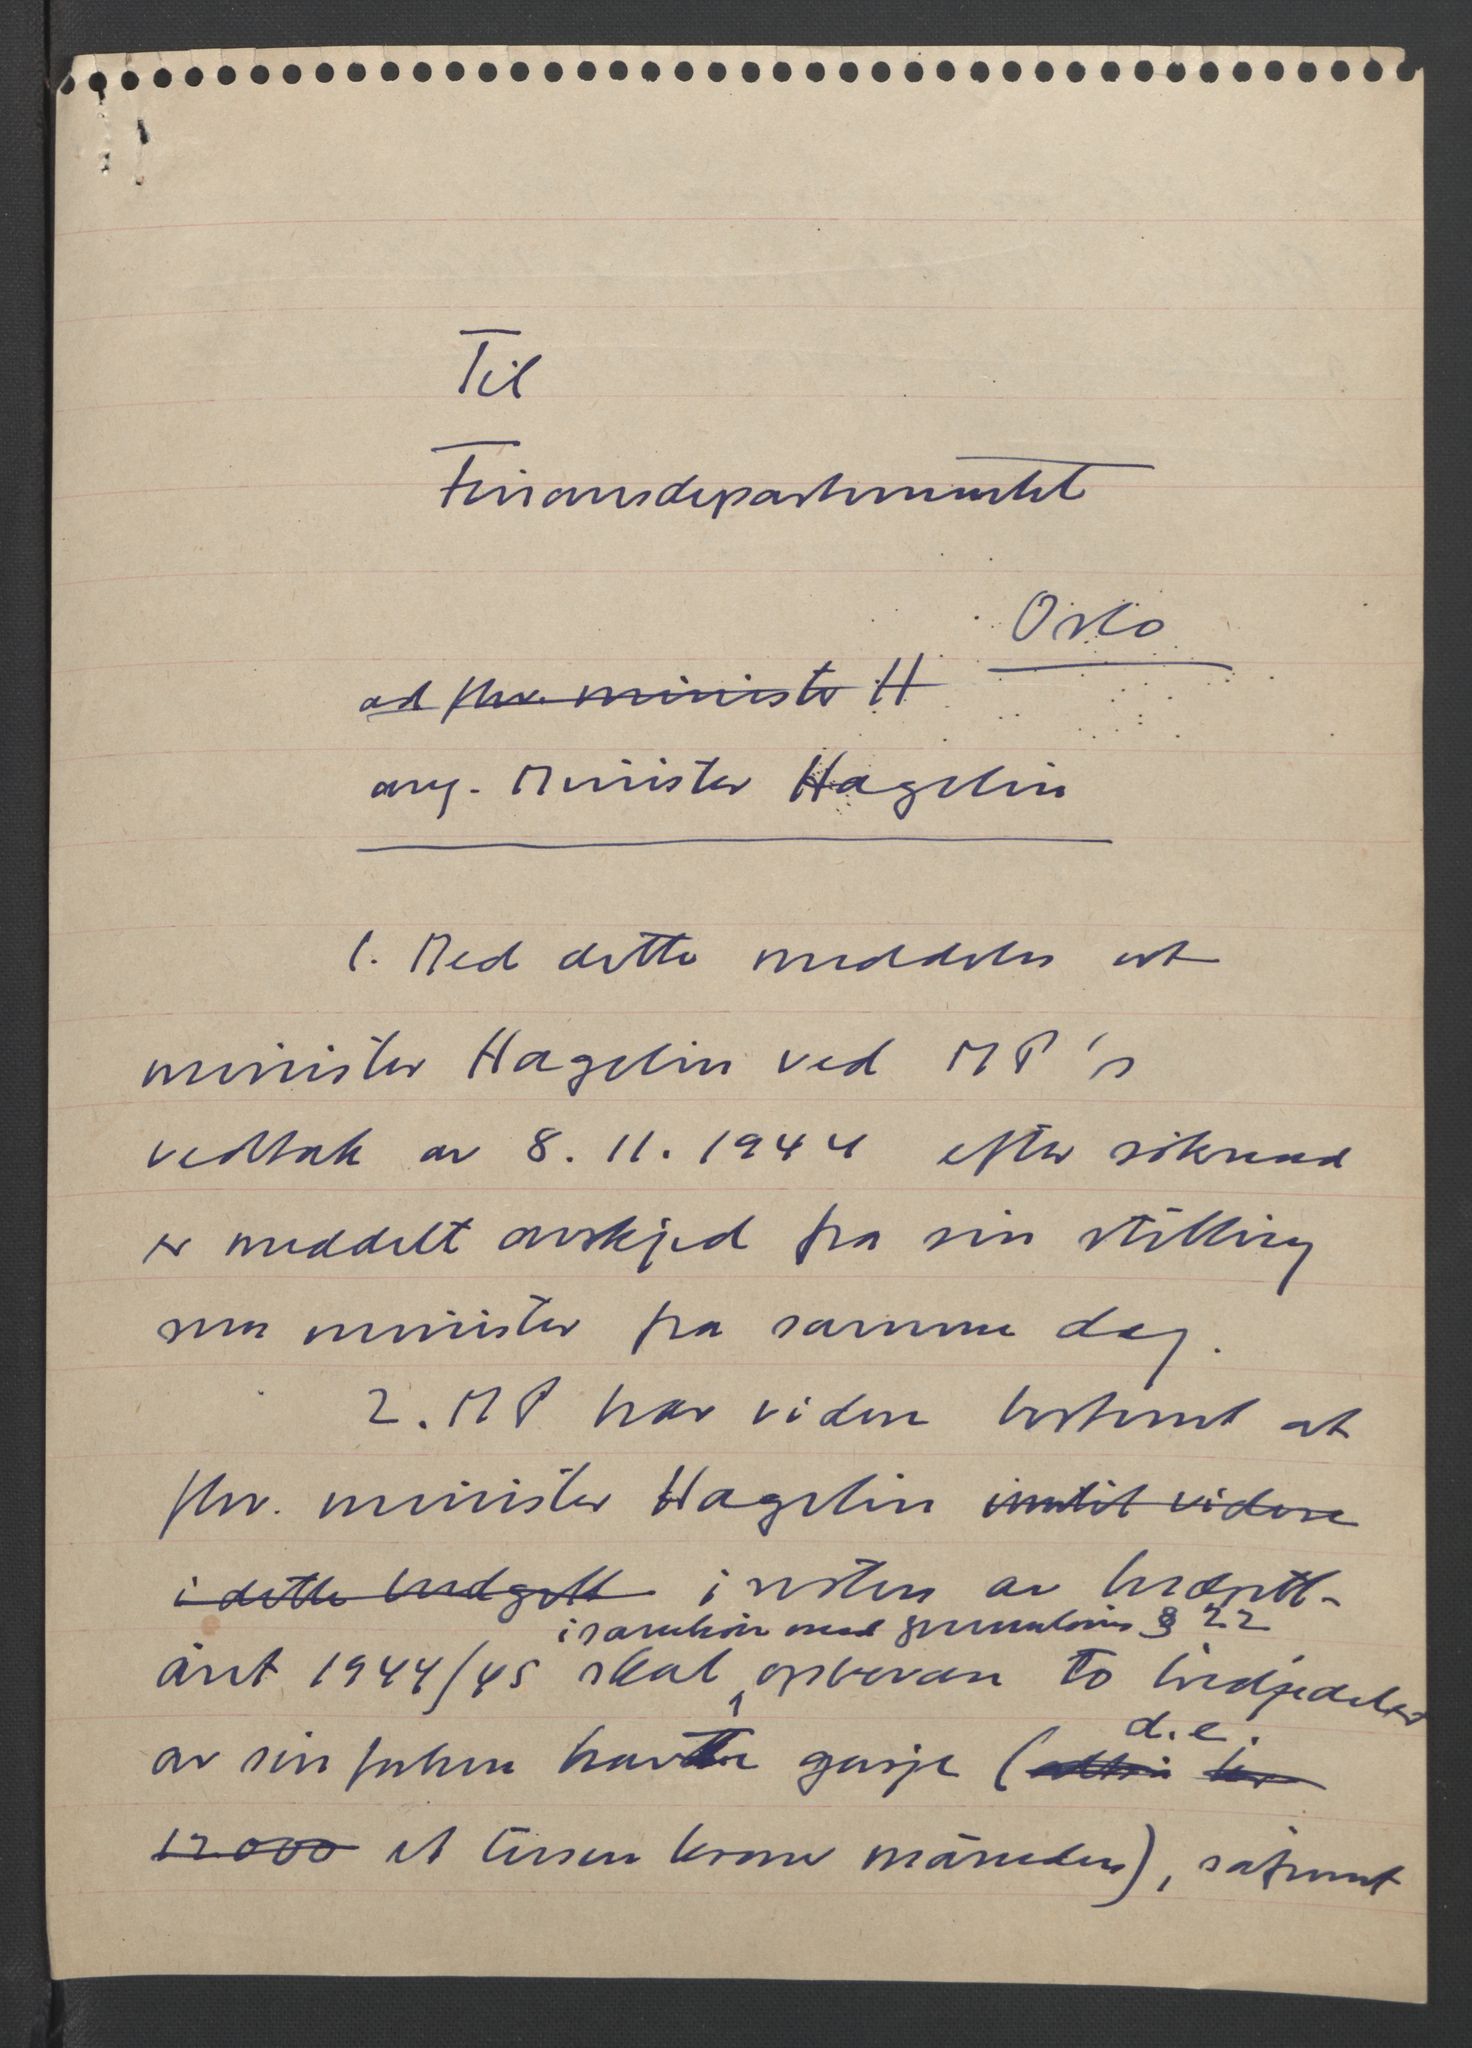 Til
Finansdepartementet
Oslo
ad fhv. minister H
ang. Minister Hagelin
1. Med dette meddeles at
minister Hagelin ved MP's
vedtak av 8.11.1944 efter söknad
er meddelt avskjed fra sin stilling
som minister fra samme dag.
2. MP har videre bestemt at
fhv. minister Hagelin inntil videre
i dette budgett i resten av budgett-
i samsvar med § 22
året 1944/45 skal oppebære to tredjedeler
d.e.
av sin gasje (
12000 et tusen kroner måneden), såfremt